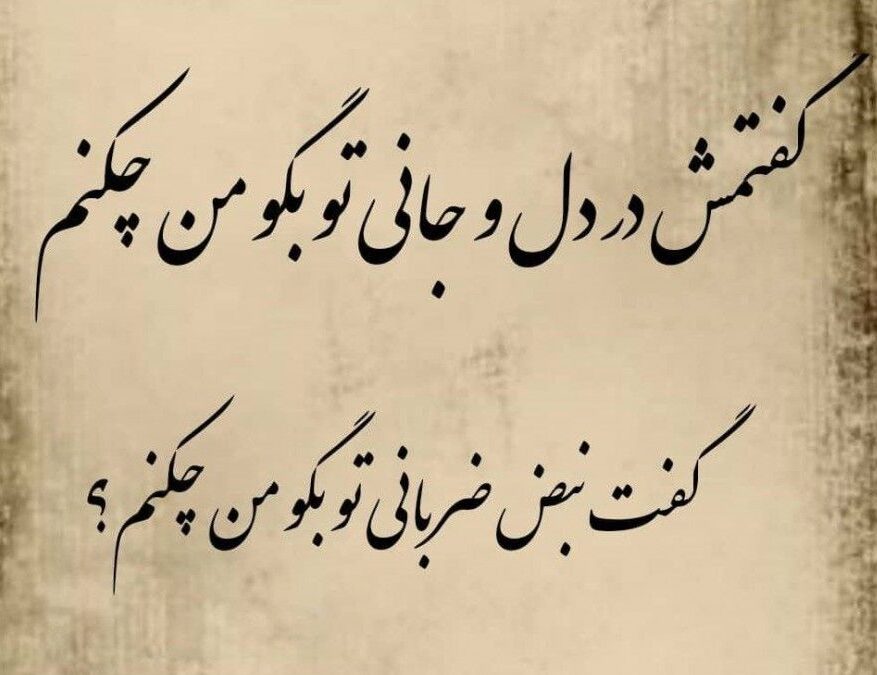 گفتمش در دل و جانی تو بگو من چکنم
گفت نبض ضربانی تو بگو من چکنم؟